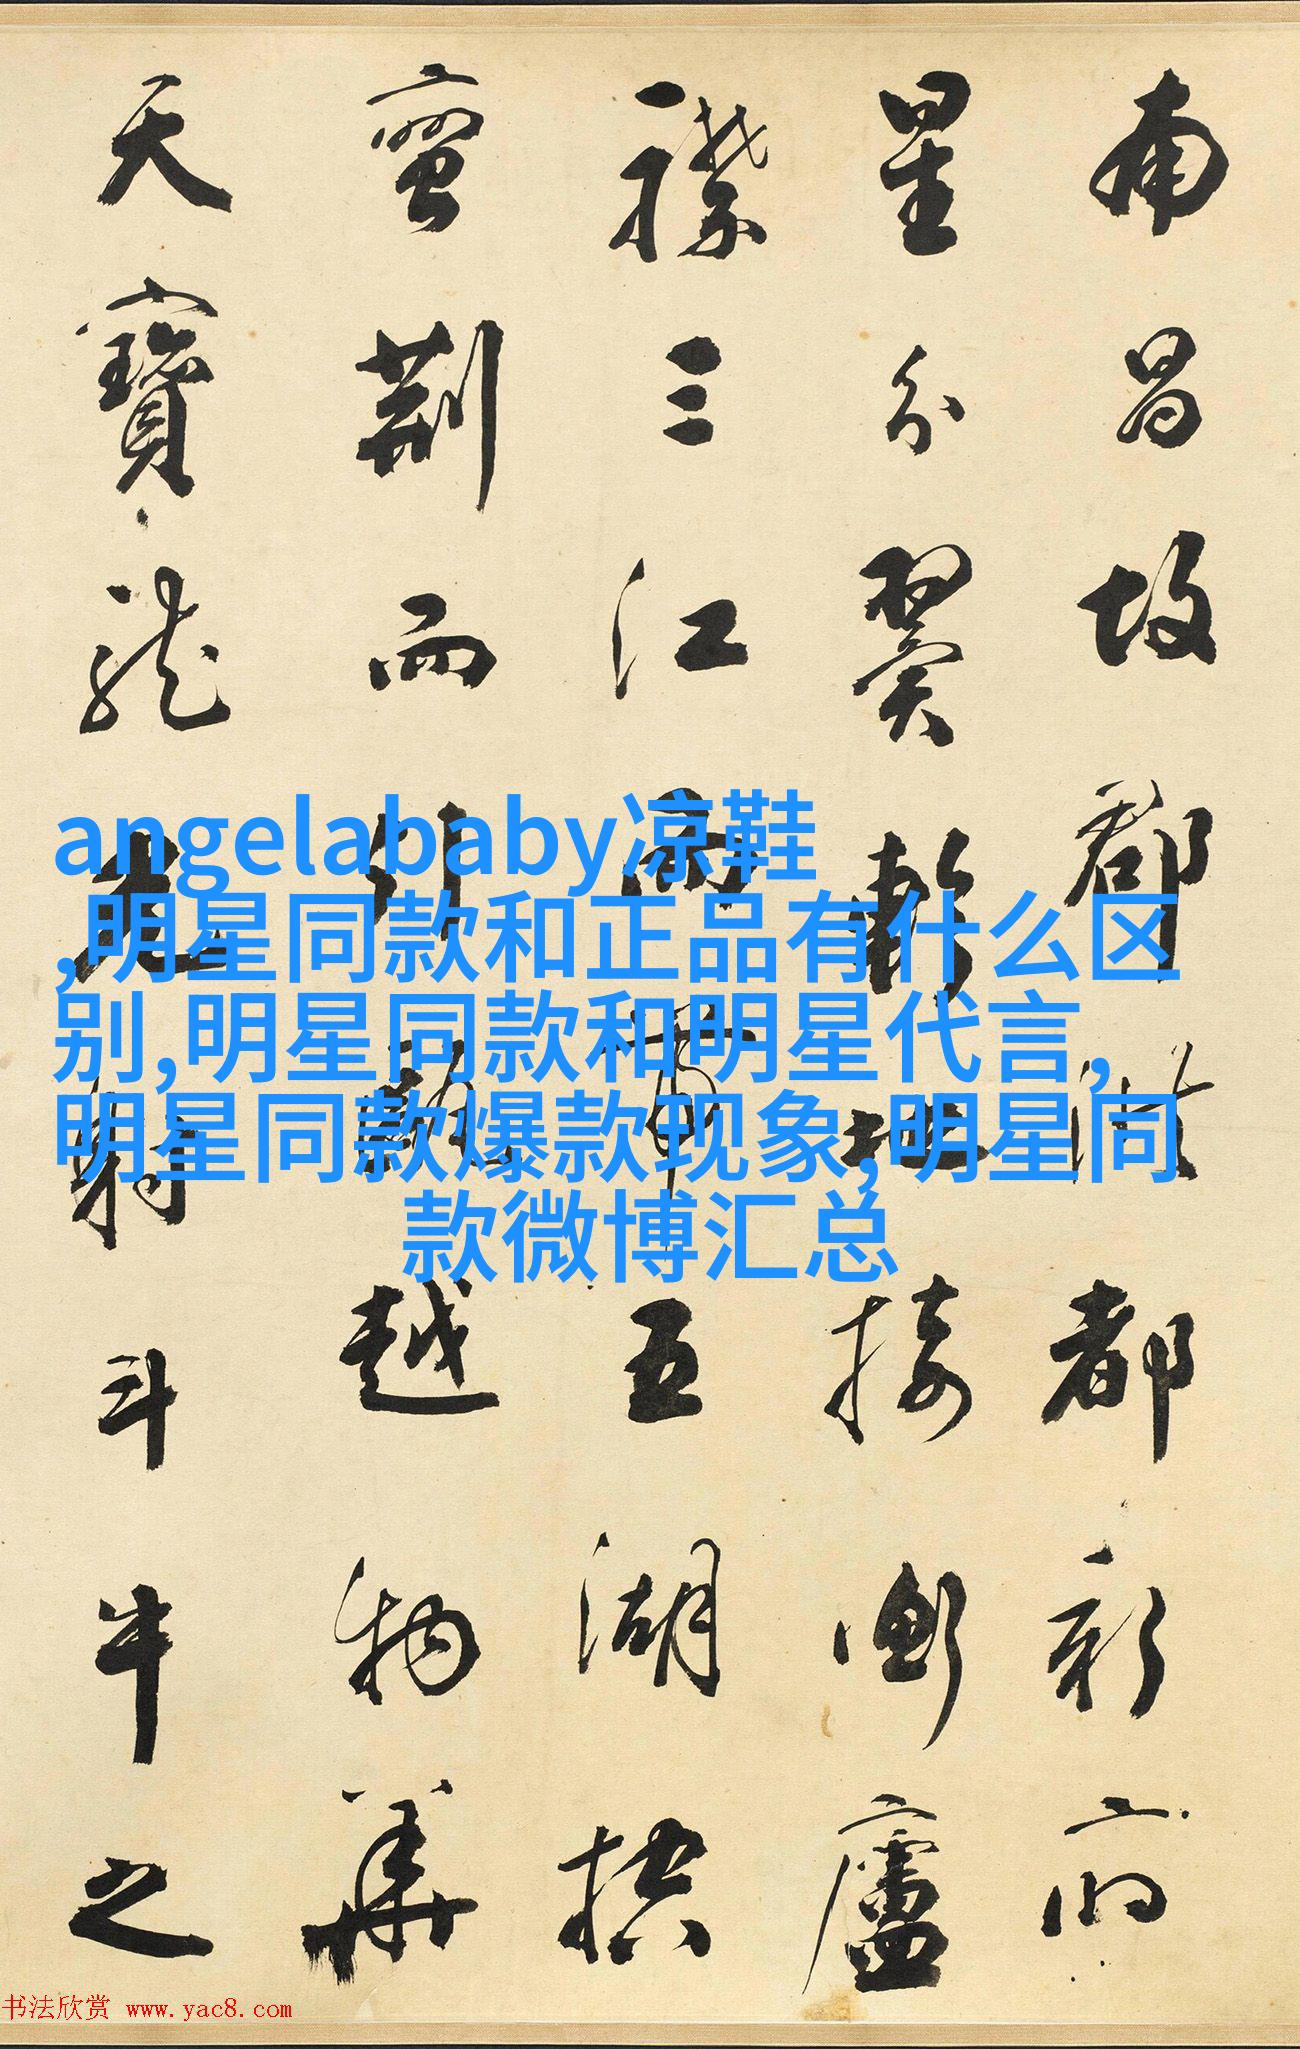 南昌故郡洪都新府
星分翼軫地接衡廬
襟三江而帶五湖控
蠻荊而引甌越物華
天寶龍光射斗牛之
angelababy凉鞋
,明星同款和正品有什么区
别,明星同款和明星代言,
明星同款爆款现象,明星同
款微博汇总
书法欣赏 www.yac8.com